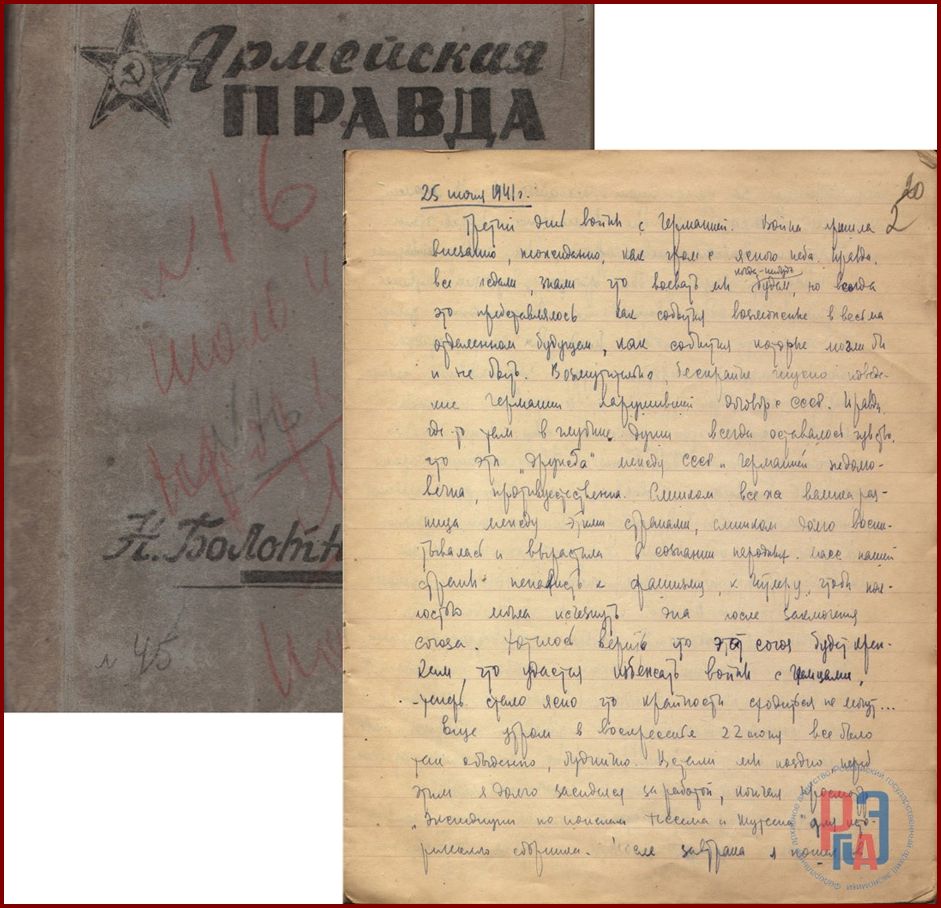 Армейская
ПРАВДА
№ 16
июль
Н. Болотн
№ 45
20
2
25 июня 1941 г.
Третий день войны с Германией. Война пришла
внезапно, неожиданно, как гром с ясного неба. Правда,
все ждали, знали что воевать мы когда-нибудь будем, но всегда
это представлялось как события возможные в весьма
отдаленном будущем, как события которые могли бы
и не быть. Возмутительно, бескрайне гнусно поведе-
ние Германии нарушившей договор с СССР. Правда,
где-то там в глубине души всегда оставалось чувство,
что эта "дружба" между СССР и Германией недолго-
вечна, противуестественна. Слишком все же велика раз-
ница между этими странами, слишком долго воспи-
тывалась и вырастала в сознании народных масс нашей
страны ненависть к фашизму, к Гитлеру, чтобы пол-
ностью могла исчезнуть она после заключения
союза. Хотелось верить что этот союз будет креп-
ким, что удастся избежать войны с немцами,
теперь стало ясно что крайности сходиться не могут...
Еще утром в воскресенье 22 июня все было
так обыденно, буднично. Встали мы поздно, перед
этим я долго засиделся за работой, кончал просмотр
"Экспедиции по поискам Тессема и Кнутсена" для
сборника. После завтрака я пошел в
Федеральное архивное агентство Российский государственный архив экономики
РГАЭ